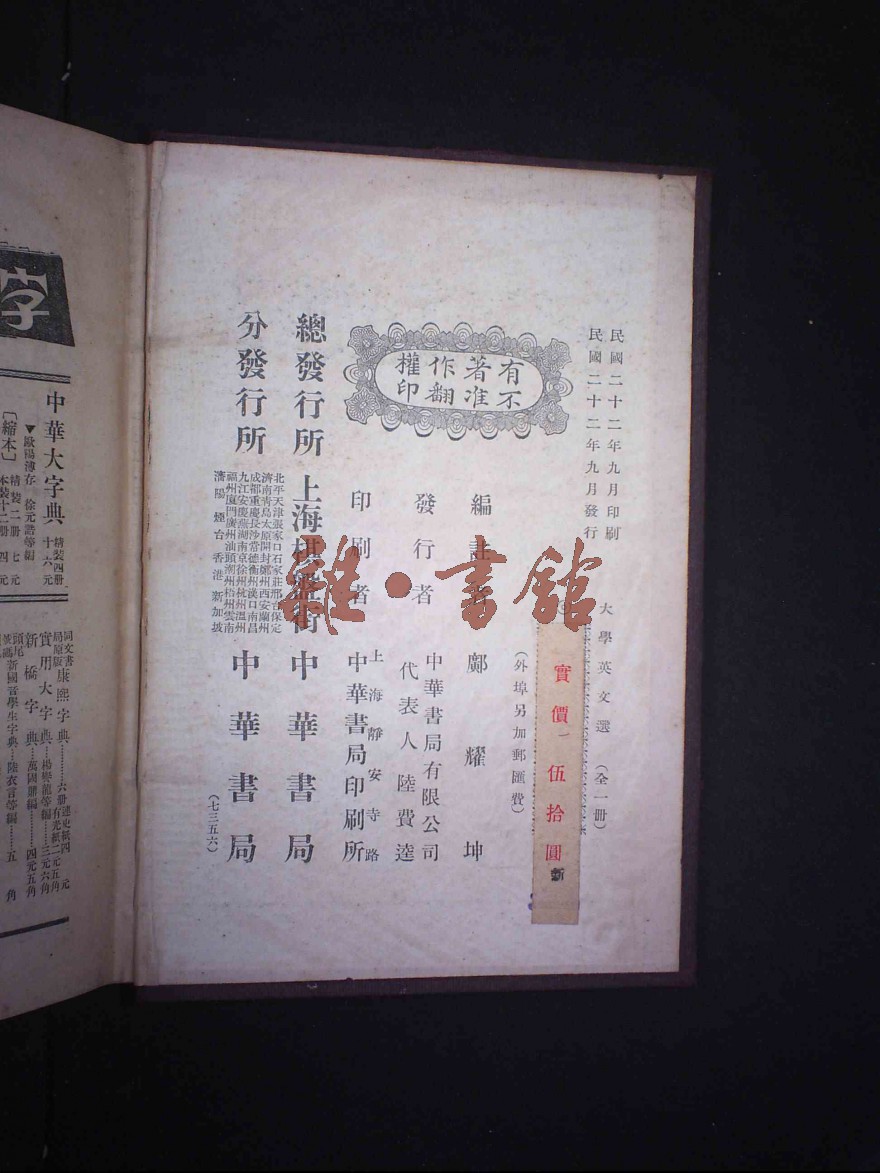 民國二十二年九月印刷
民國二十二年九月發行
大學英文選（全一冊）
實價 伍拾圓
新
（外埠另加郵匯費）
有著作權
不准翻印
編註者 鄺耀坤
發行者 中華書局有限公司
代表人陸費逵
印刷者 上海靜安寺路
中華書局印刷所
總發行所 上海棋盤街 中華書局
分發行所
北平天津張家口石家莊邢台保定
濟南青島太原開封鄭州西安蘭州
成都重慶長沙常德衡州漢口南昌
九江安慶蕪湖南京徐州杭州溫州
福州廈門廣州汕頭潮州梧州雲南
瀋陽 煙台 香港 新加坡
中華書局
（七三五六）
雜·書館
字
中華大字典 精裝四冊 十六元
▼歐陽溥存 徐元誥等編
〔縮本〕 精裝二冊 七元
本裝十二冊 四元
同文書局原版 康熙字典……六冊
連史紙四元
有光紙二元五角
實用大字典……楊譽龍等編……三元六角
新橋字典……萬國鼎編……四元五角
新國音學生字典……陸衣言等編……五角